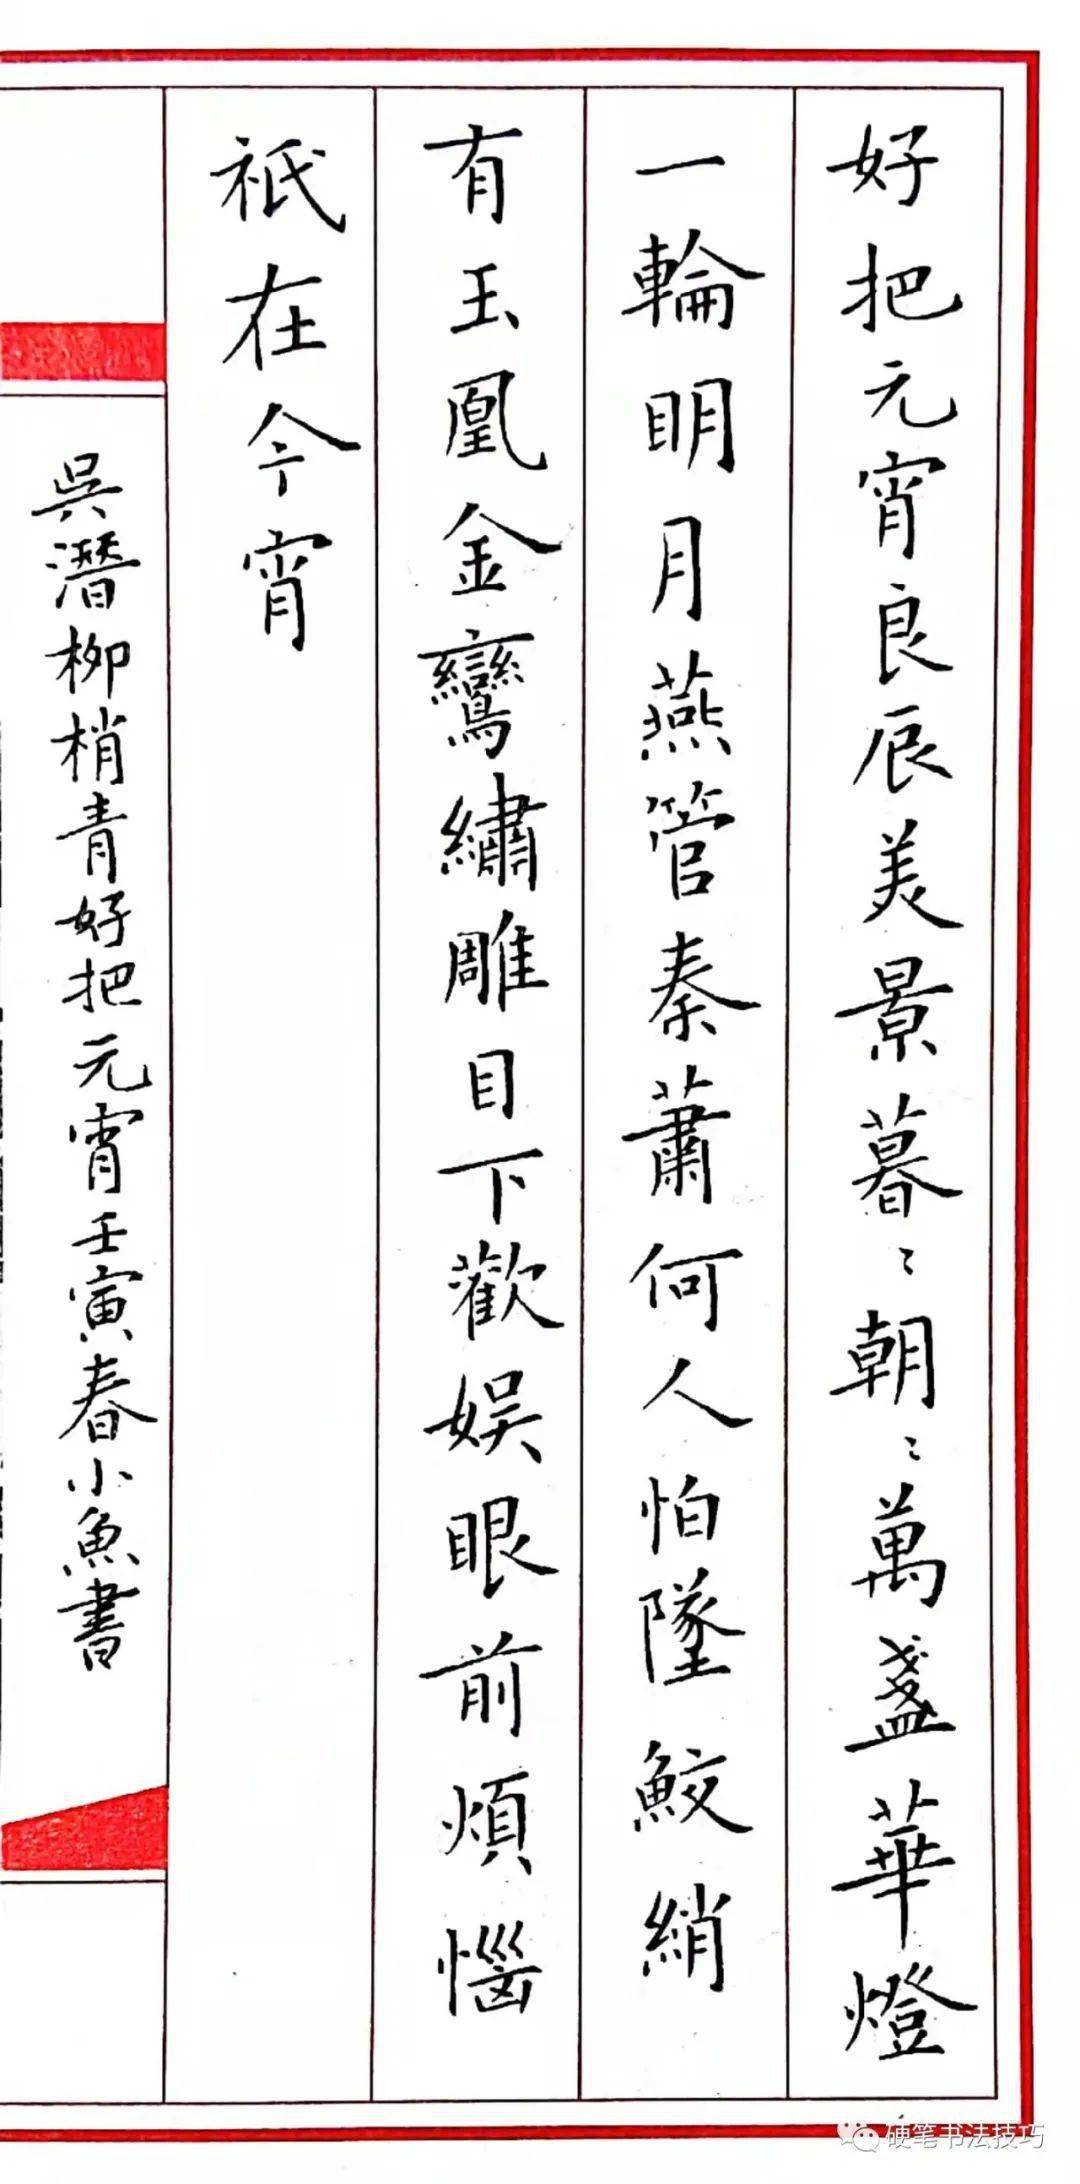 好把元宵良辰美景暮〻朝〻萬盞華燈
一輪明月燕管秦蕭何人怕墜鮫綃
有玉凰金鸞繡雕目下歡娛眼前煩惱
祇在今宵
吳潛柳梢青好把元宵壬寅春小魚書
硬笔书法技巧